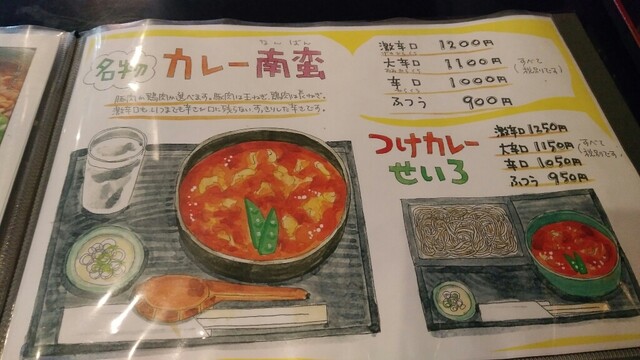 名物
カレー南蛮
なんばん
豚肉か鶏肉が選べます。豚肉は玉ねぎ、鶏肉は長ねぎ。
激辛口もいつまでも辛さが口に残らない、すっきりした辛さです。
激辛口 1200円
大辛口 1100円
辛口 1000円
ふつう 900円
すべて
(税別です)
つけカレー
せいろ
激辛口 1250円
大辛口 1150円
辛口 1050円
ふつう 950円
(すべて
税別です)